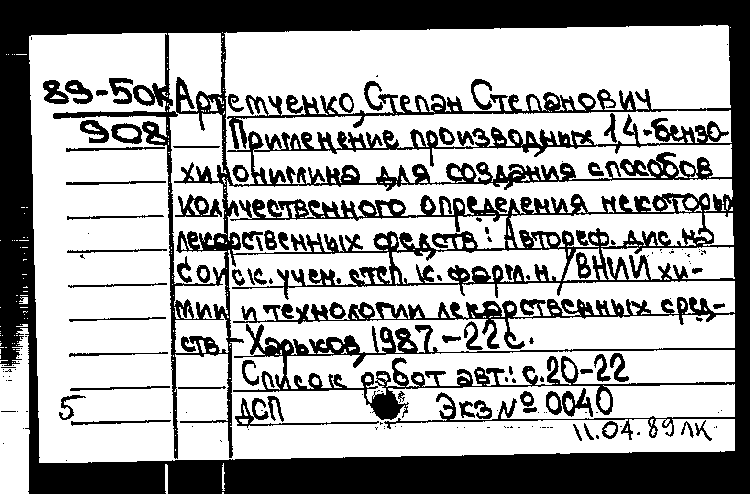 89-50к Артемченко, Степан Степанович
908 Применение производных 1,4-бензо-
хинонимина для создания способов
количественного определения некоторых
лекарственных средств: Автореф. дис. на
соиск. учен. степ. к. фарм. н. /ВНИИ хи-
мии и технологии лекарственных сред-
ств. - Харьков, 1987. - 22 с.
Список работ авт.: с. 20-22
5 ДСП Экз № 0040
11.04.89 ЛК